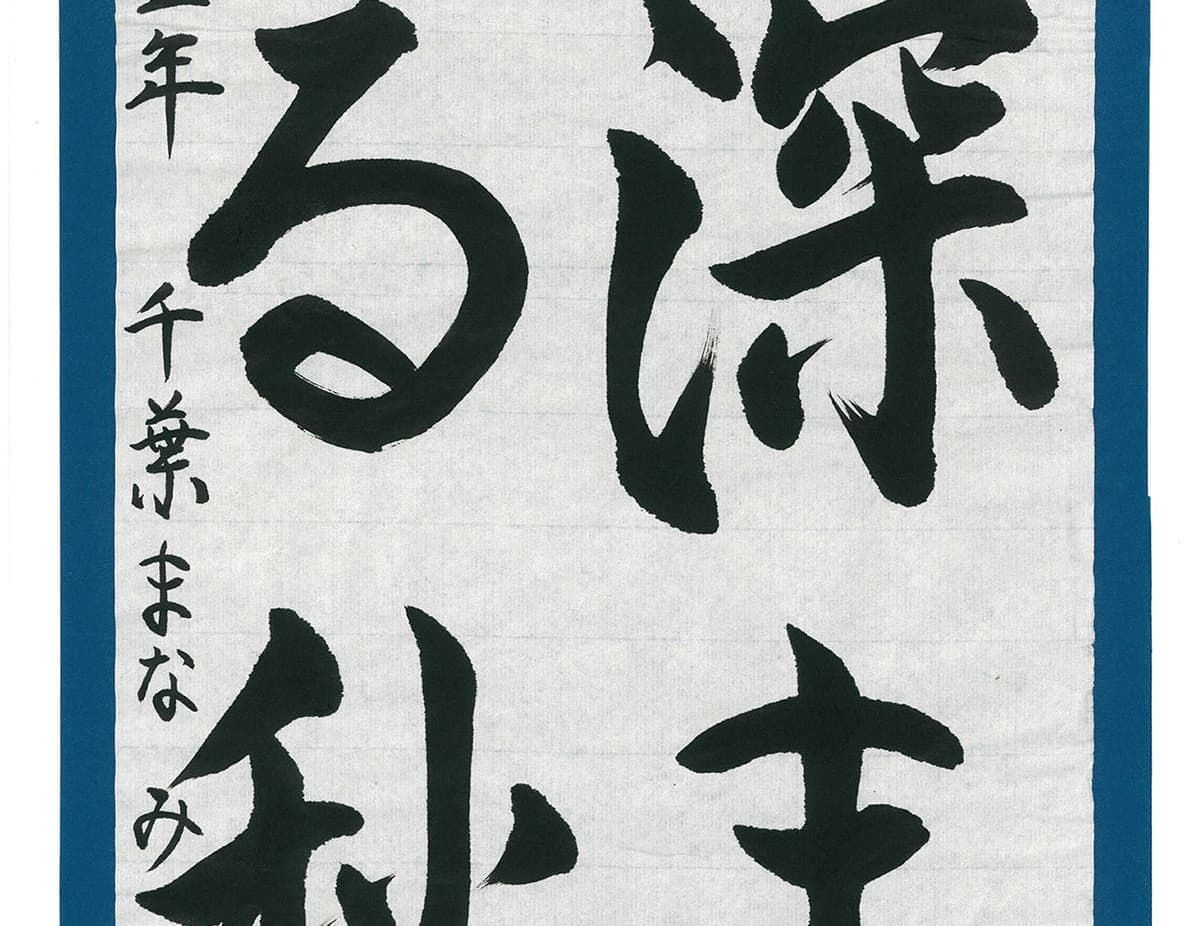 深ま
る秋
年 千葉まなみ